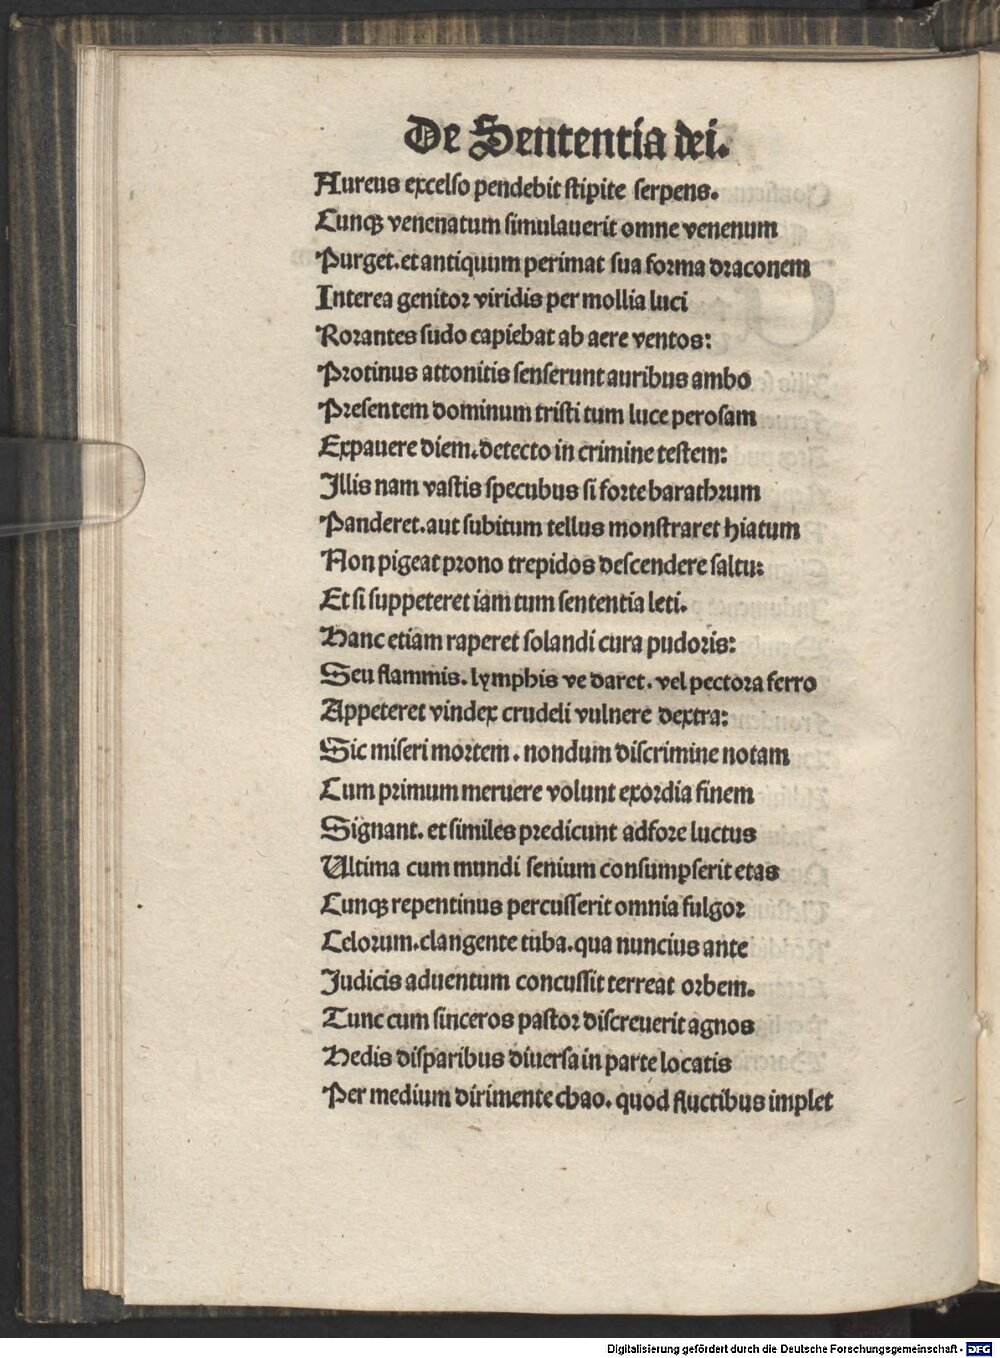 De Sententia dei.
Aureus excelso pendebit stipite serpens.
Cunqꝫ venenatum simulauerit omne venenum
Purget. et antiquum perimat sua forma draconem
Interea genitor viridis per mollia luci
Rorantes sudo capiebat ab aere ventos:
Protinus attonitis senserunt auribus ambo
Presentem dominum tristi tum luce perosam
Expauere diem. detecto in crimine testem:
Illis nam vastis specubus si forte barathrum
Panderet. aut subitum tellus monstraret hiatum
Non pigeat prono trepidos descendere saltu:
Et si suppeteret iam tum sententia leti.
Hanc etiam raperet solandi cura pudoris:
Seu flammis. lymphis ve daret. vel pectora ferro
Appeteret vindex crudeli vulnere dextra:
Sic miseri mortem. nondum discrimine notam
Cum primum meruere volunt exordia finem
Signant. et similes predicunt adfore luctus
Ultima cum mundi senium consumpserit etas
Cunqꝫ repentinus percusserit omnia fulgor
Celorum. clangente tuba. qua nuncius ante
Judicis aduentum concussit terreat orbem.
Tunc cum sinceros pastor discreuerit agnos
Hedis disparibus diuersa in parte locatis
Per medium dirimente chao. quod fluctibus implet
Digitalisierung gefördert durch die Deutsche Forschungsgemeinschaft - DFG